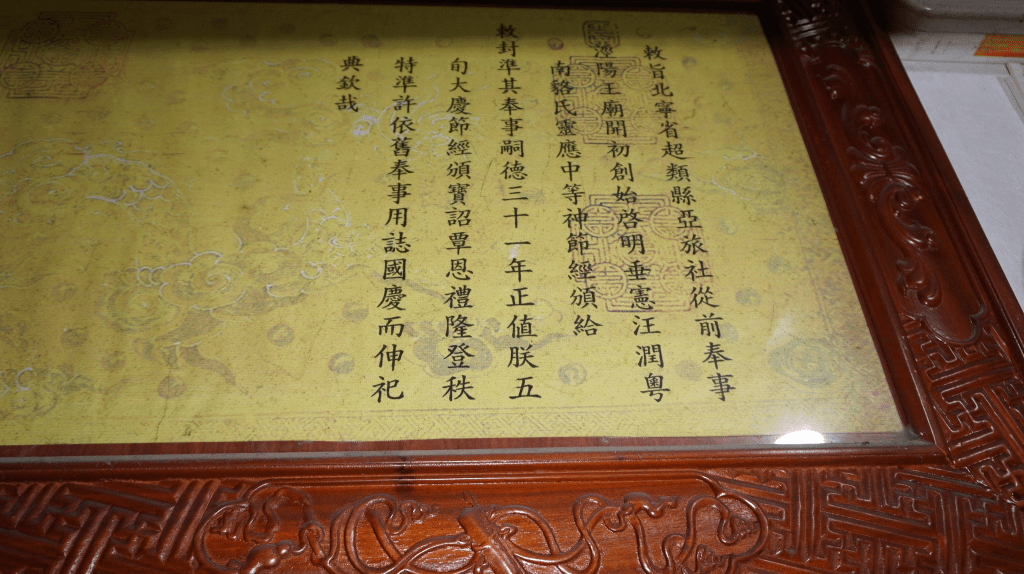 敕旨北寧省超類縣亞旅社從前奉事
涇陽王廟開初創始啓明垂憲汪潤粵
南貉氏靈應中等神節經頒給
敕封準其奉事嗣德三十一年正值朕五
旬大慶節經頒寶詔覃恩禮隆登秩
特準許依舊奉事用誌國慶而伸祀
典欽哉